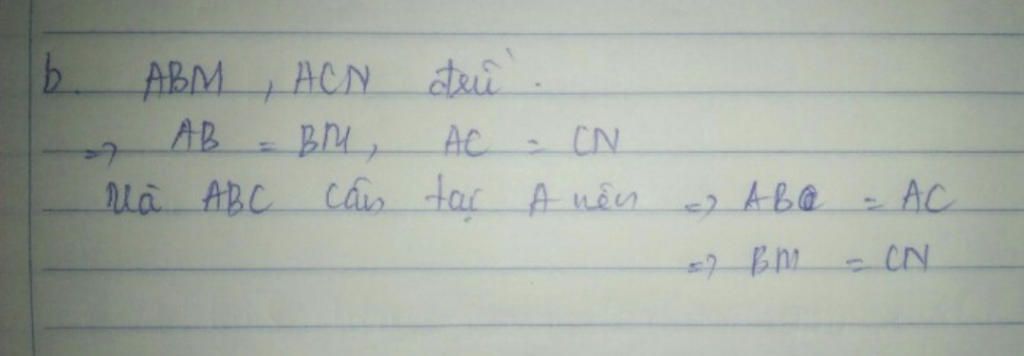 b. ABM, ACN đều.
=> AB = BM, AC = CN
Mà ABC cân tại A nên => AB = AC
=> BM = CN